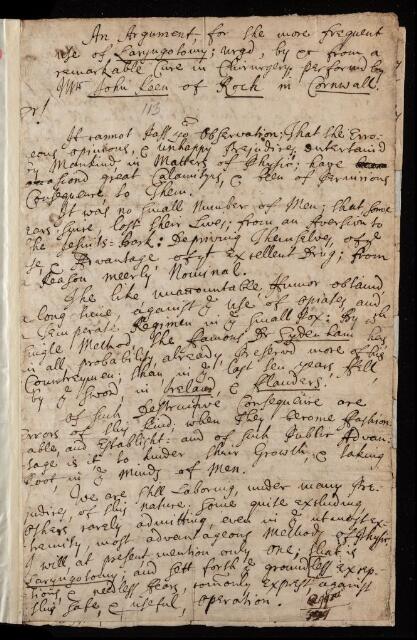 An Argument for the more frequent
use of Laryngotomy; urg'd, by &c from a
remarkable Cure in Chirurgery, perform'd by
Mr John Keen of Rock in Cornwall.
Sr!
113
It cannot fall to Observation; That the Erro-
eous opinions, & unhappy Prejudices, entertaind
by Mankind in Matters of Physic; have
occasiond great Calamitys, & been of Pernicious
Consequence, to Them.
It was no small Number of Men; that some
years since, lost their Lives; from an Aversion to
the Jesuits-bark: Depriving Themselves, of ye
use, & Advantage of yt Excellent Drug; from
a Reason meerly Nominal.
The like unaccountable Humor obtaind
a long time, against ye use of opiates, and
a Temperate Regimen in ye Small Pox: By wch
single Method, the Famous Dr Sydenham has
in all probability already, Preserv'd more of his
Countreymen, than in ye last ten years, fell
by ye Sword, in Ireland, & Flanders.
Of such Destructive Consequence are
Errors of this kind, when They become Fashion-
able, and Establisht: and of such Publick Advan-
tage is it to hinder their Growth, & taking
Root in ye Minds of Men.
We are still Laboring, under many Pre-
judices, of this nature; some quite excluding
others rarely admitting, even in ye utmost ex-
tremity, most advantageous Methods of Physic.
I will at present mention only one; that is
Laryngotomy, and sett forth ye groundless excep-
tions, & needless fears, commonly exprest against
this safe, & useful, operation.